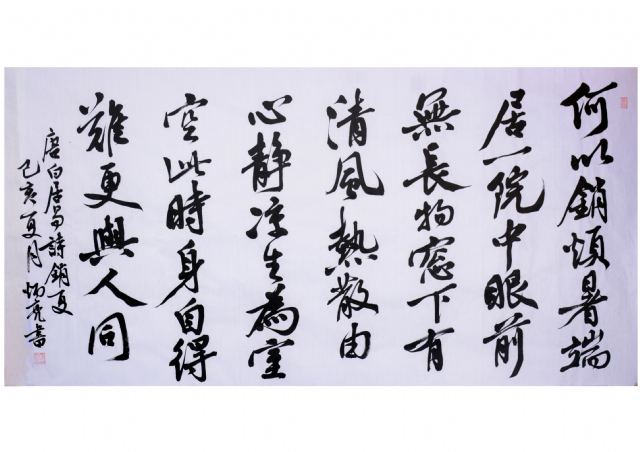 何以銷煩暑端
居一院中眼前
無長物窓下有
清風熱散由
心静凉生為室
空此時身自得
難更與人同
唐白居易詩銷夏
己亥夏月炳亮書